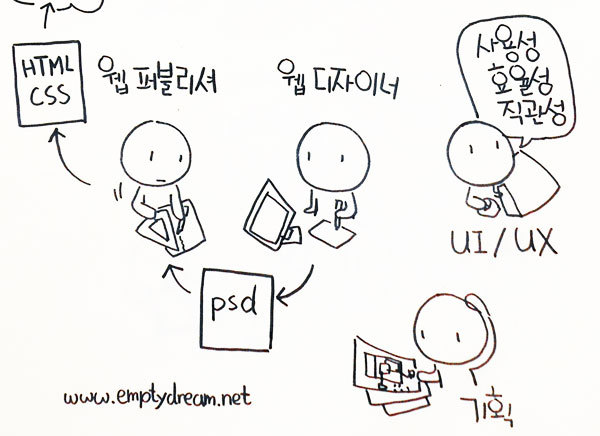 HTML
CSS
웹 퍼블리셔
웹 디자이너
사용성
효율성
직관성
UI/UX
psd
기획
www.emptydream.net